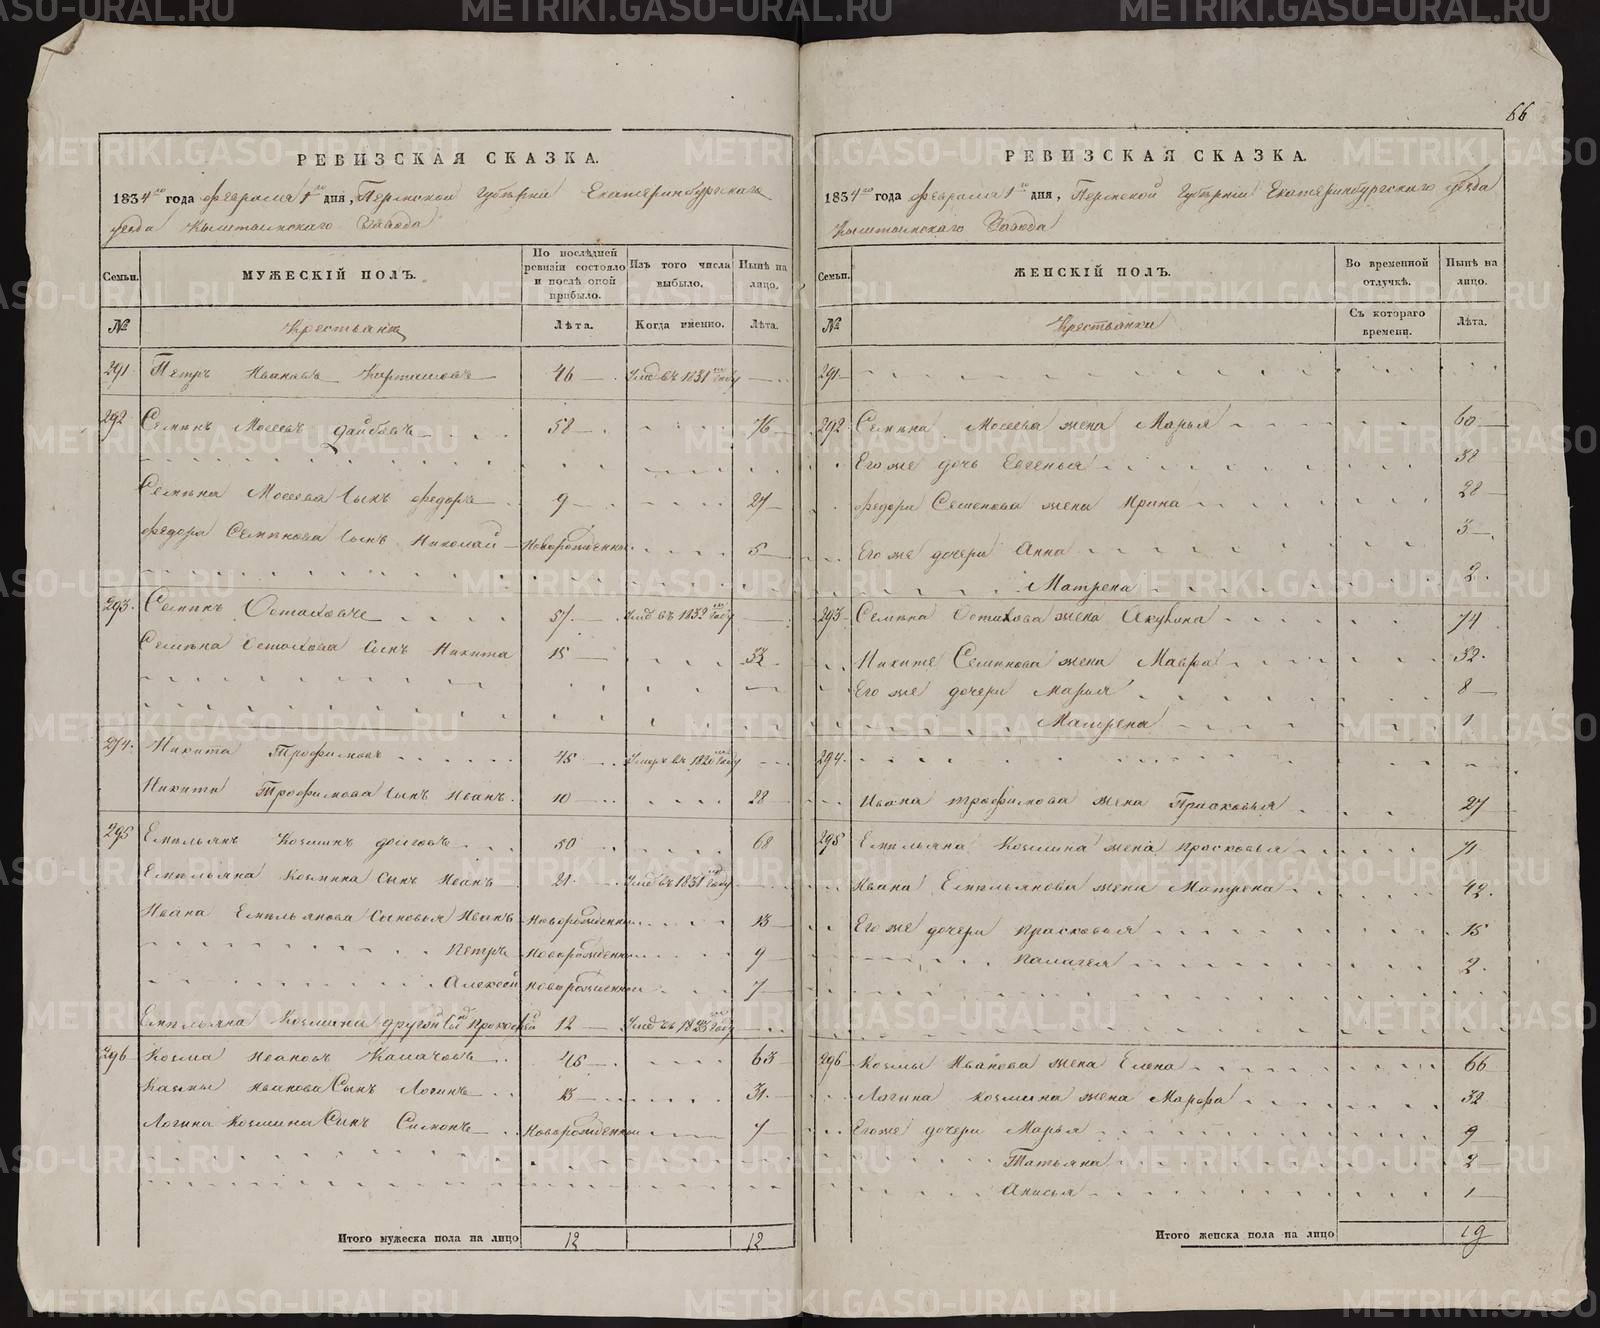 66
РЕВИЗСКАЯ СКАЗКА.
1834го года февраля 1го дня, Пермской Губерніи Екатеринбургскаго
уезда Кыштымскаго Завода
Семьи. МУЖЕСКІЙ ПОЛЪ. По послѣдней ревизіи состояло и послѣ оной прибыло. Изъ того числа выбыло. Нынѣ на лицо.
№ Крестьяне Лѣта. Когда именно. Лѣта.
291 Петръ Ивановъ 46 въ 1831 году
292 Семенъ Моисеевъ 58 76
Семена Моисеева сынъ Федоръ 9 27
Федора Семенова сынъ Николай Новорожденный 5
293. Семенъ Остаховъ 57 въ 1832 году
Семена Остахова сынъ Никита 15 33
294. Никита Трофимовъ 45 Умеръ въ 1820 году
Никиты Трофимова сынъ Иванъ 10 28
295 Емельянъ Козминъ 50 68
Емельяна Козмина сынъ Иванъ 21 въ 1831 году
Ивана Емельянова сыновья Иванъ Новорожденный 13
Петръ Новорожденный 9
Алексей Новорожденный 7
Емельяна Козмина другой сынъ Прокофей 12 въ 1825 году
296 Козма Ивановъ 45 63
Козмы Иванова сынъ Логинъ 13 31
Логина Козмина сынъ Симонъ Новорожденный 7
Итого мужеска пола на лицо 12 12
РЕВИЗСКАЯ СКАЗКА.
1834го года февраля 1го дня, Пермской Губерніи Екатеринбургскаго уезда
Кыштымскаго Завода
Семьи. ЖЕНСКІЙ ПОЛЪ. Во временной отлучкѣ. Нынѣ на лицо.
№ Крестьянки Съ котораго времени. Лѣта.
291
292 Семена Моисеева жена Марья 60
Его же дочь Евгенья 38
Федора Семенова жена Ирина 28
Его же дочери Анна 3
Матрена 2
293 Семена Остахова жена Акулина 74
Никиты Семенова жена Мавра 32
Его же дочери Марья 8
Матрена 1
294
Ивана Трофимова жена Прасковья 27
295 Емельяна Козмина жена Прасковья 71
Ивана Емельянова жена Матрена 42
Его же дочери Прасковья 15
Палагея 2
296 Козмы Иванова жена Елена 66
Логина Козмина жена Марфа 32
Его же дочери Марья 9
Татьяна 2
Анисья 1
Итого женска пола на лицо 19
METRIKI.GASO-URAL.RU